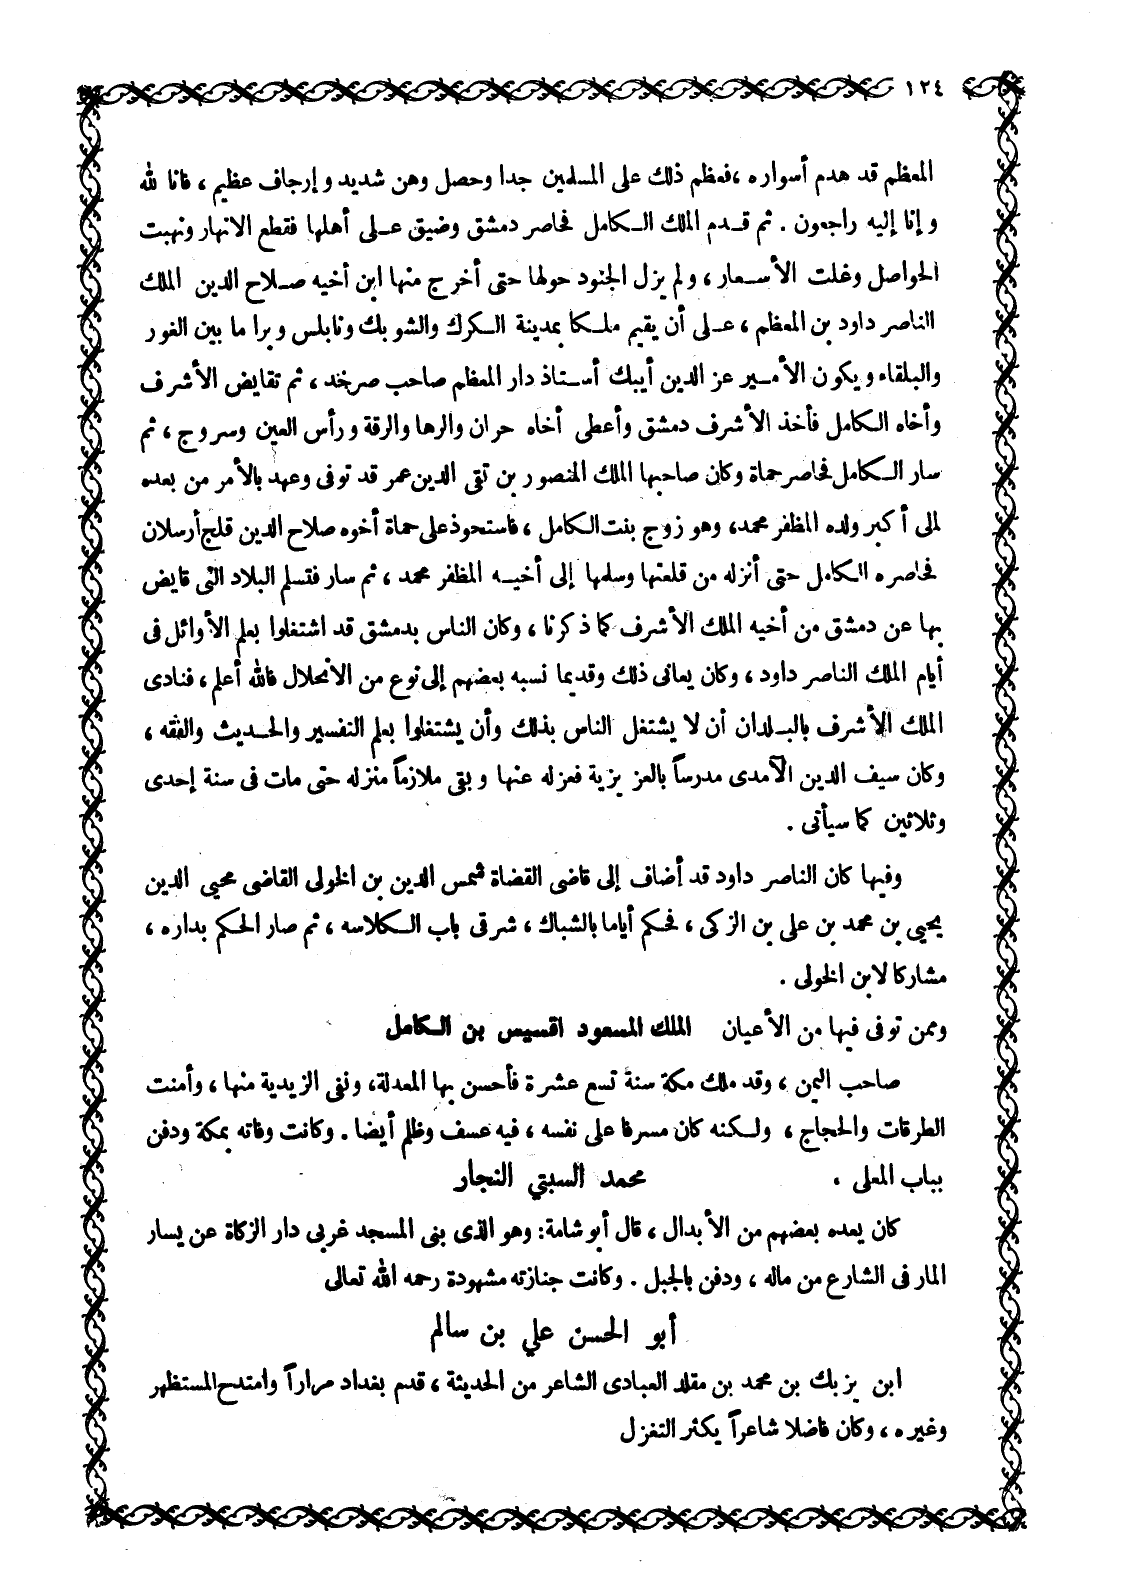 ١٢٤
المعظم قد هدم أسواره ، فعظم ذلك على المسلمين جدا وحصل وهن شديد وإرجاف عظيم ، فانا لله
وإنا إليه راجعون . ثم قدم الملك الكامل فحاصر دمشق وضيق على أهلها فقطع الانهار ونهبت
الحواصل وغلت الأسعار ، ولم يزل الجنود حولها حتى أخرج منها ابن أخيه صلاح الدين الملك
الناصر داود بن المعظم ، على أن يقيم ملكا بمدينة الكرك والشوبك ونابلس وبرا ما بين الغور
والبلقاء ويكون الأمير عز الدين أيبك أستاذ دار المعظم صاحب صرخد ، ثم تقايض الأشرف
وأخاه الكامل فأخذ الأشرف دمشق وأعطى أخاه حران والرها والرقة ورأس العين وسروج ، ثم
سار الكامل فحاصر حماة وكان صاحبها الملك المنصور بن تقى الدين عمر قد توفى وعهد بالأمر من بعده
لمالى أكبر ولده المظفر محمد، وهو زوج بنت الكامل ، فاستحوذ على حماة أخوه صلاح الدين قلج أرسلان
فحاصره الكامل حتى أنزله من قلعتها وسلمها إلى أخيه المظفر محمد ، ثم سار فتسلم البلاد التى قايض
بها عن دمشق من أخيه الملك الأشرف كما ذكرنا ، وكان الناس بدمشق قد اشتغلوا بعلم الأوائل فى
أيام الملك الناصر داود ، وكان يعانى ذلك وقديما نسبه بعضهم إلى نوع من الانحلال فالله أعلم ، فنادى
الملك الأشرف بالبلدان أن لا يشتغل الناس بذلك وأن يشتغلوا بعلم التفسير والحديث والفقه ،
وكان سيف الدين الآمدى مدرساً بالعزيزية فعزله عنها وبقى ملازماً منزله حتى مات فى سنة إحدى
وثلاثين كما سيأتى .
وفيها كان الناصر داود قد أضاف إلى قاضى القضاة شمس الدين بن الخولى القاضى محيى الدين
يحيى بن محمد بن على بن الزكى ، فحكم أياما بالشباك ، شرقى باب الكلاسه ، ثم صار الحكم بداره ،
مشاركا لابن الخولى .
وممن توفى فيها من الأعيان الملك المسعود اقسيس بن الكامل
صاحب اليمن ، وقد ملك مكة سنة تسع عشرة فأحسن بها المعدلة، ونفى الزيدية منها ، وأمنت
الطرقات والحجاج ، ولكنه كان مسرفا على نفسه ، فيه عسف وظلم أيضا . وكانت وفاته بمكة ودفن
بباب المعلى ، محمد السبتي النجار
كان يعده بعضهم من الأبدال ، قال أبو شامة: وهو الذى بنى المسجد غربى دار الزكاة عن يسار
المار فى الشارع من ماله ، ودفن بالجبل . وكانت جنازته مشهودة رحمه الله تعالى
أبو الحسن علي بن سالم
ابن يزبك بن محمد بن مقلد العبادى الشاعر من الحديثة ، قدم بغداد مراراً وامتدح المستظهر
وغيره ، وكان فاضلا شاعراً يكثر التغزل